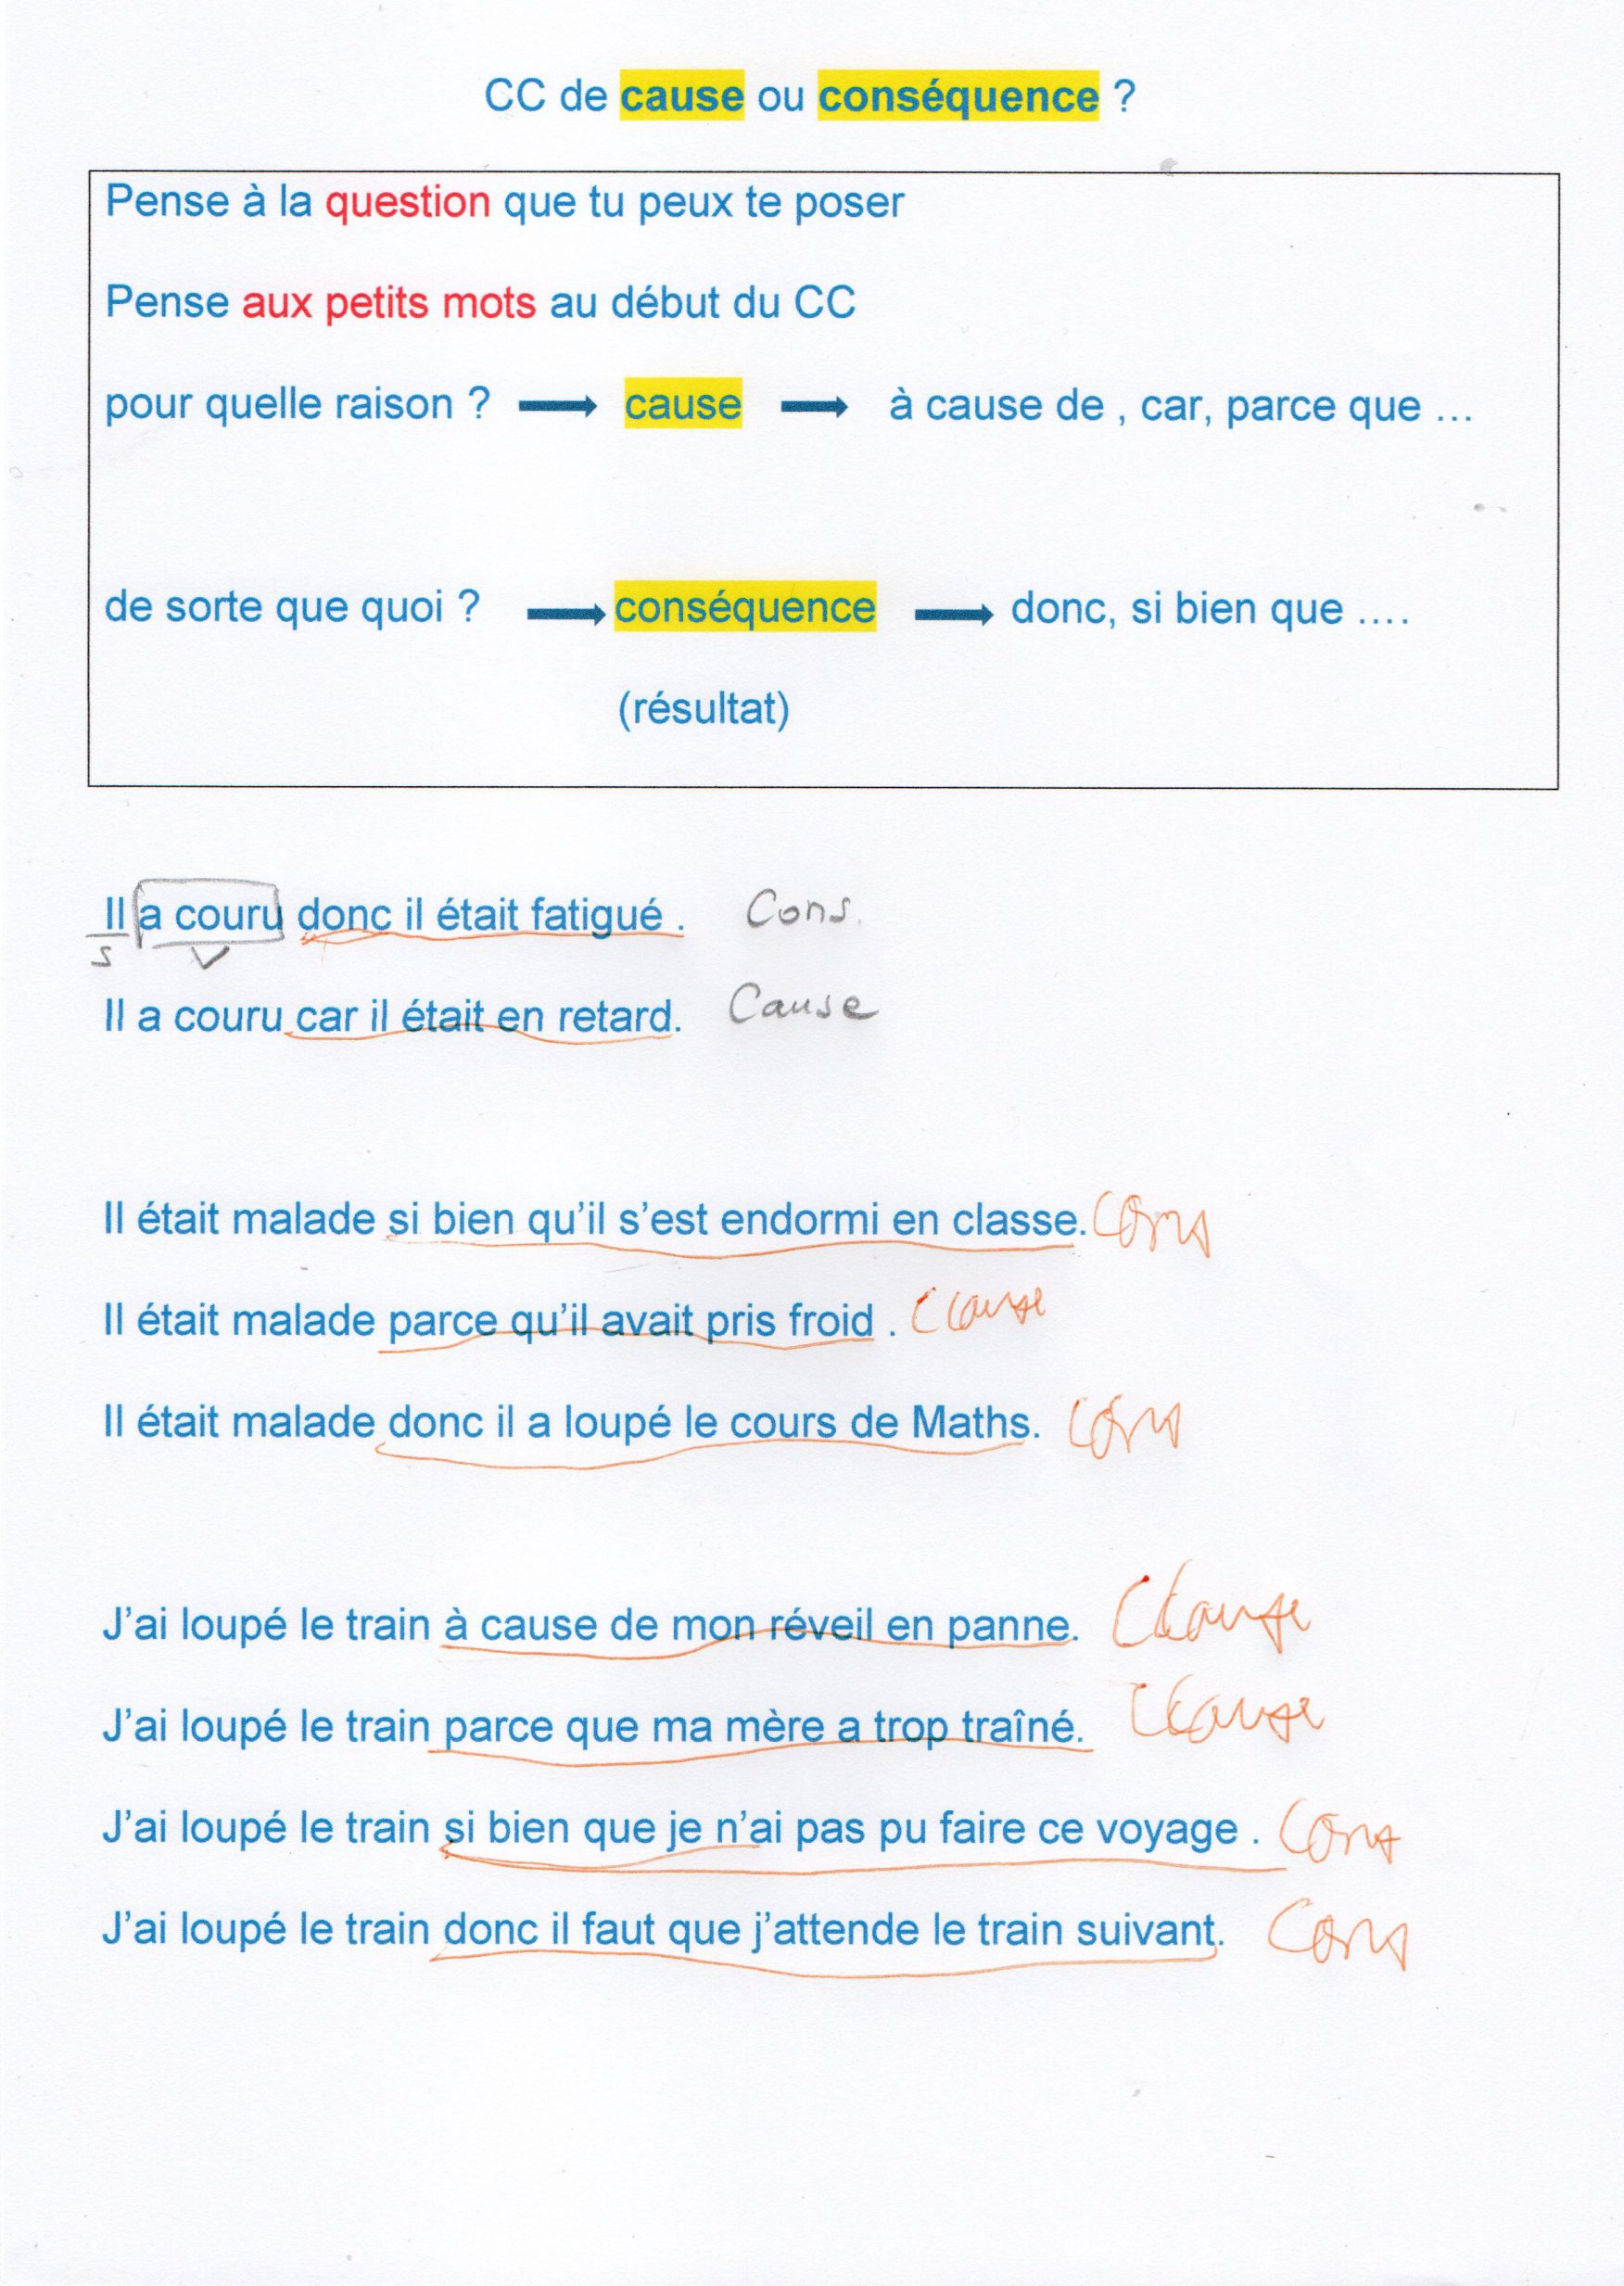 CC de cause ou conséquence ?
Pense à la question que tu peux te poser
Pense aux petits mots au début du CC
pour quelle raison ? → cause → à cause de , car, parce que ...
de sorte que quoi ? → conséquence → donc, si bien que ....
(résultat)
Il a couru donc il était fatigué . Cons.
S V
Il a couru car il était en retard. Cause
Il était malade si bien qu'il s'est endormi en classe. Cons
Il était malade parce qu'il avait pris froid . Clause
Il était malade donc il a loupé le cours de Maths. Cons
J'ai loupé le train à cause de mon réveil en panne. Clause
J'ai loupé le train parce que ma mère a trop traîné. Clause
J'ai loupé le train si bien que je n'ai pas pu faire ce voyage . Cons
J'ai loupé le train donc il faut que j'attende le train suivant. Cons